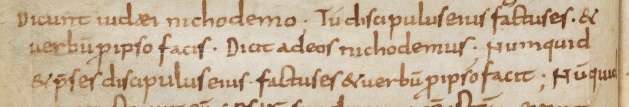 Dicunt iudæi nichodemo · Tu discipulus eius factus es · &
uerbũ p ipso facis · Dicit ad eos nichodemus · Numquid
& p̃ses discipulus eius factus es & uerbũ p ipso facit ; Nũquid